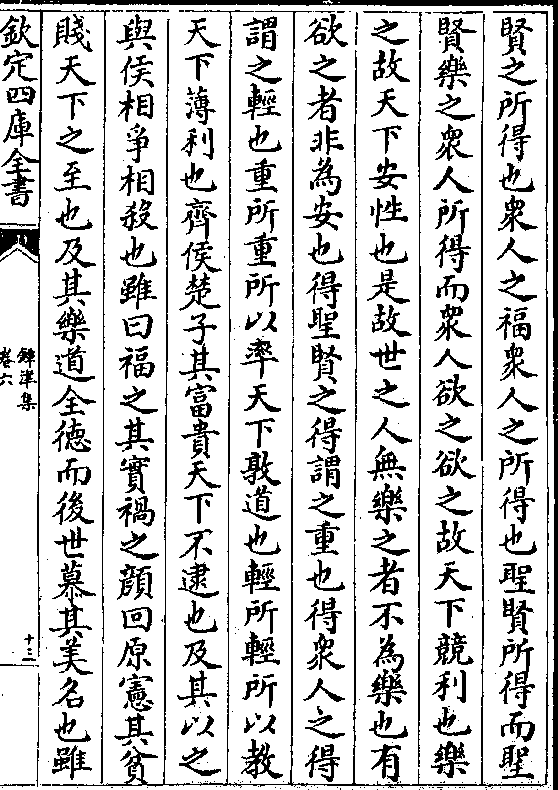 賢之所得也衆人之福衆人之所得也聖賢所得而聖
賢樂之衆人所得而衆人欲之欲之故天下競利也樂
之故天下安性也是故世之人無樂之者不為樂也有
欲之者非為安也得聖賢之得謂之重也得衆人之得
謂之輕也重所重所以率天下敦道也輕所輕所以教
天下薄利也齊侯楚子其富貴天下不逮也及其以之
與侯相爭相殺也雖曰福之其實禍之顔回原憲其貧
賤天下之至也及其樂道全德而後世慕其美名也雖
欽定四庫全書
鐔津集
卷六
十三